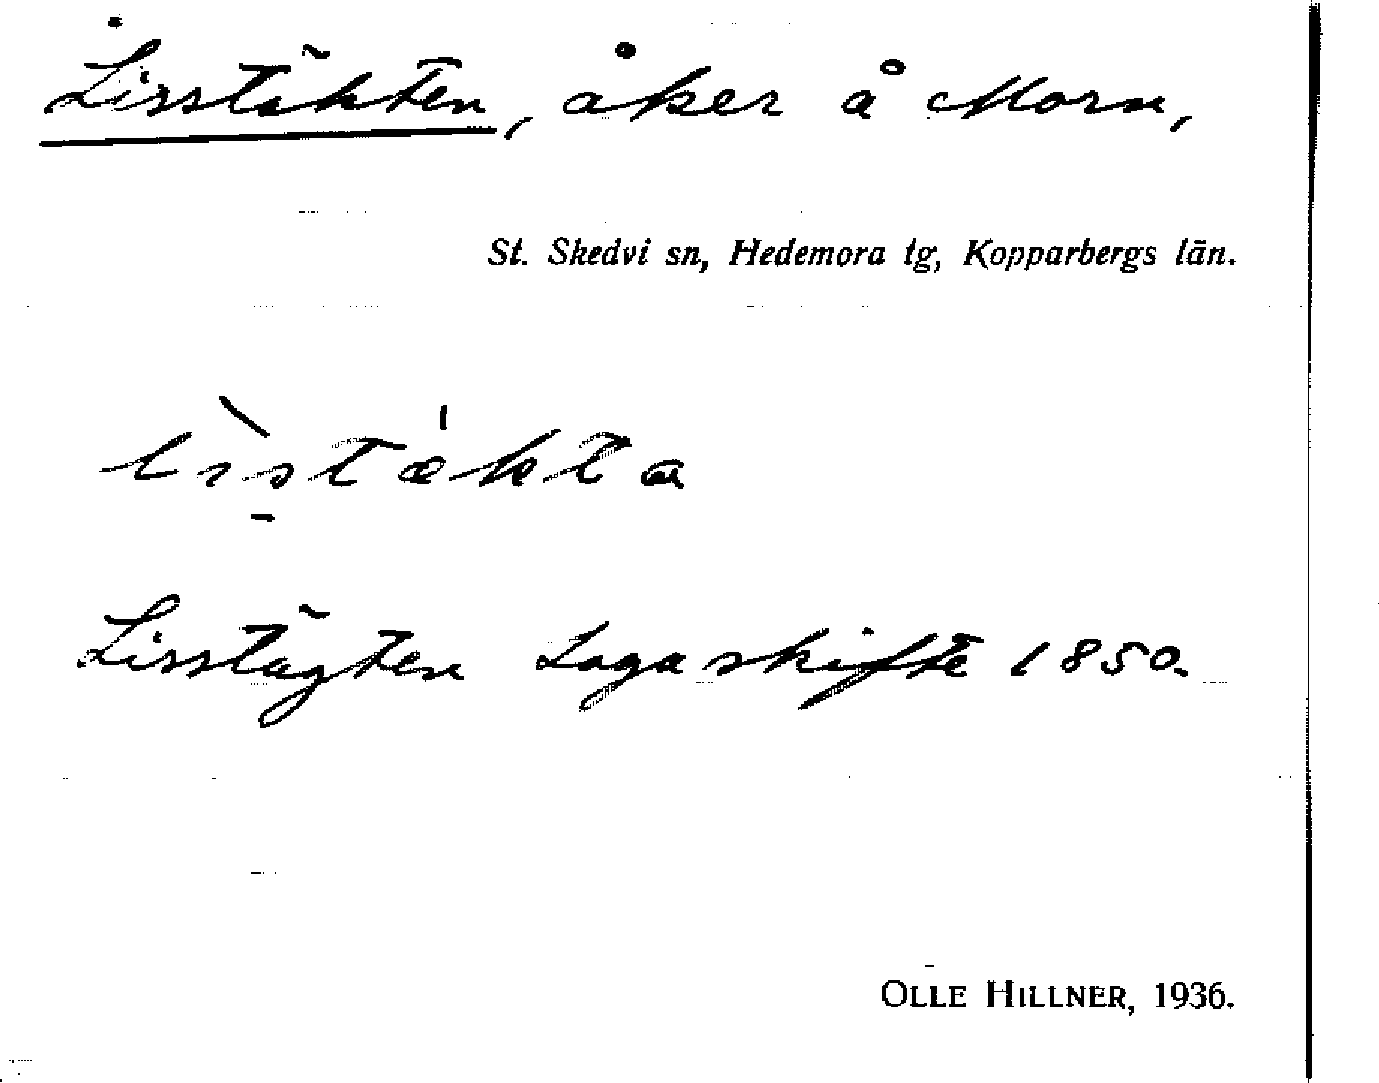 Lisstäkten, åker å Morn,
St. Skedvi sn, Hedemora tg, Kopparbergs län.
lìstǽkta
Lisstägten Laga skifte 1850.
OLLE HILLNER, 1936.